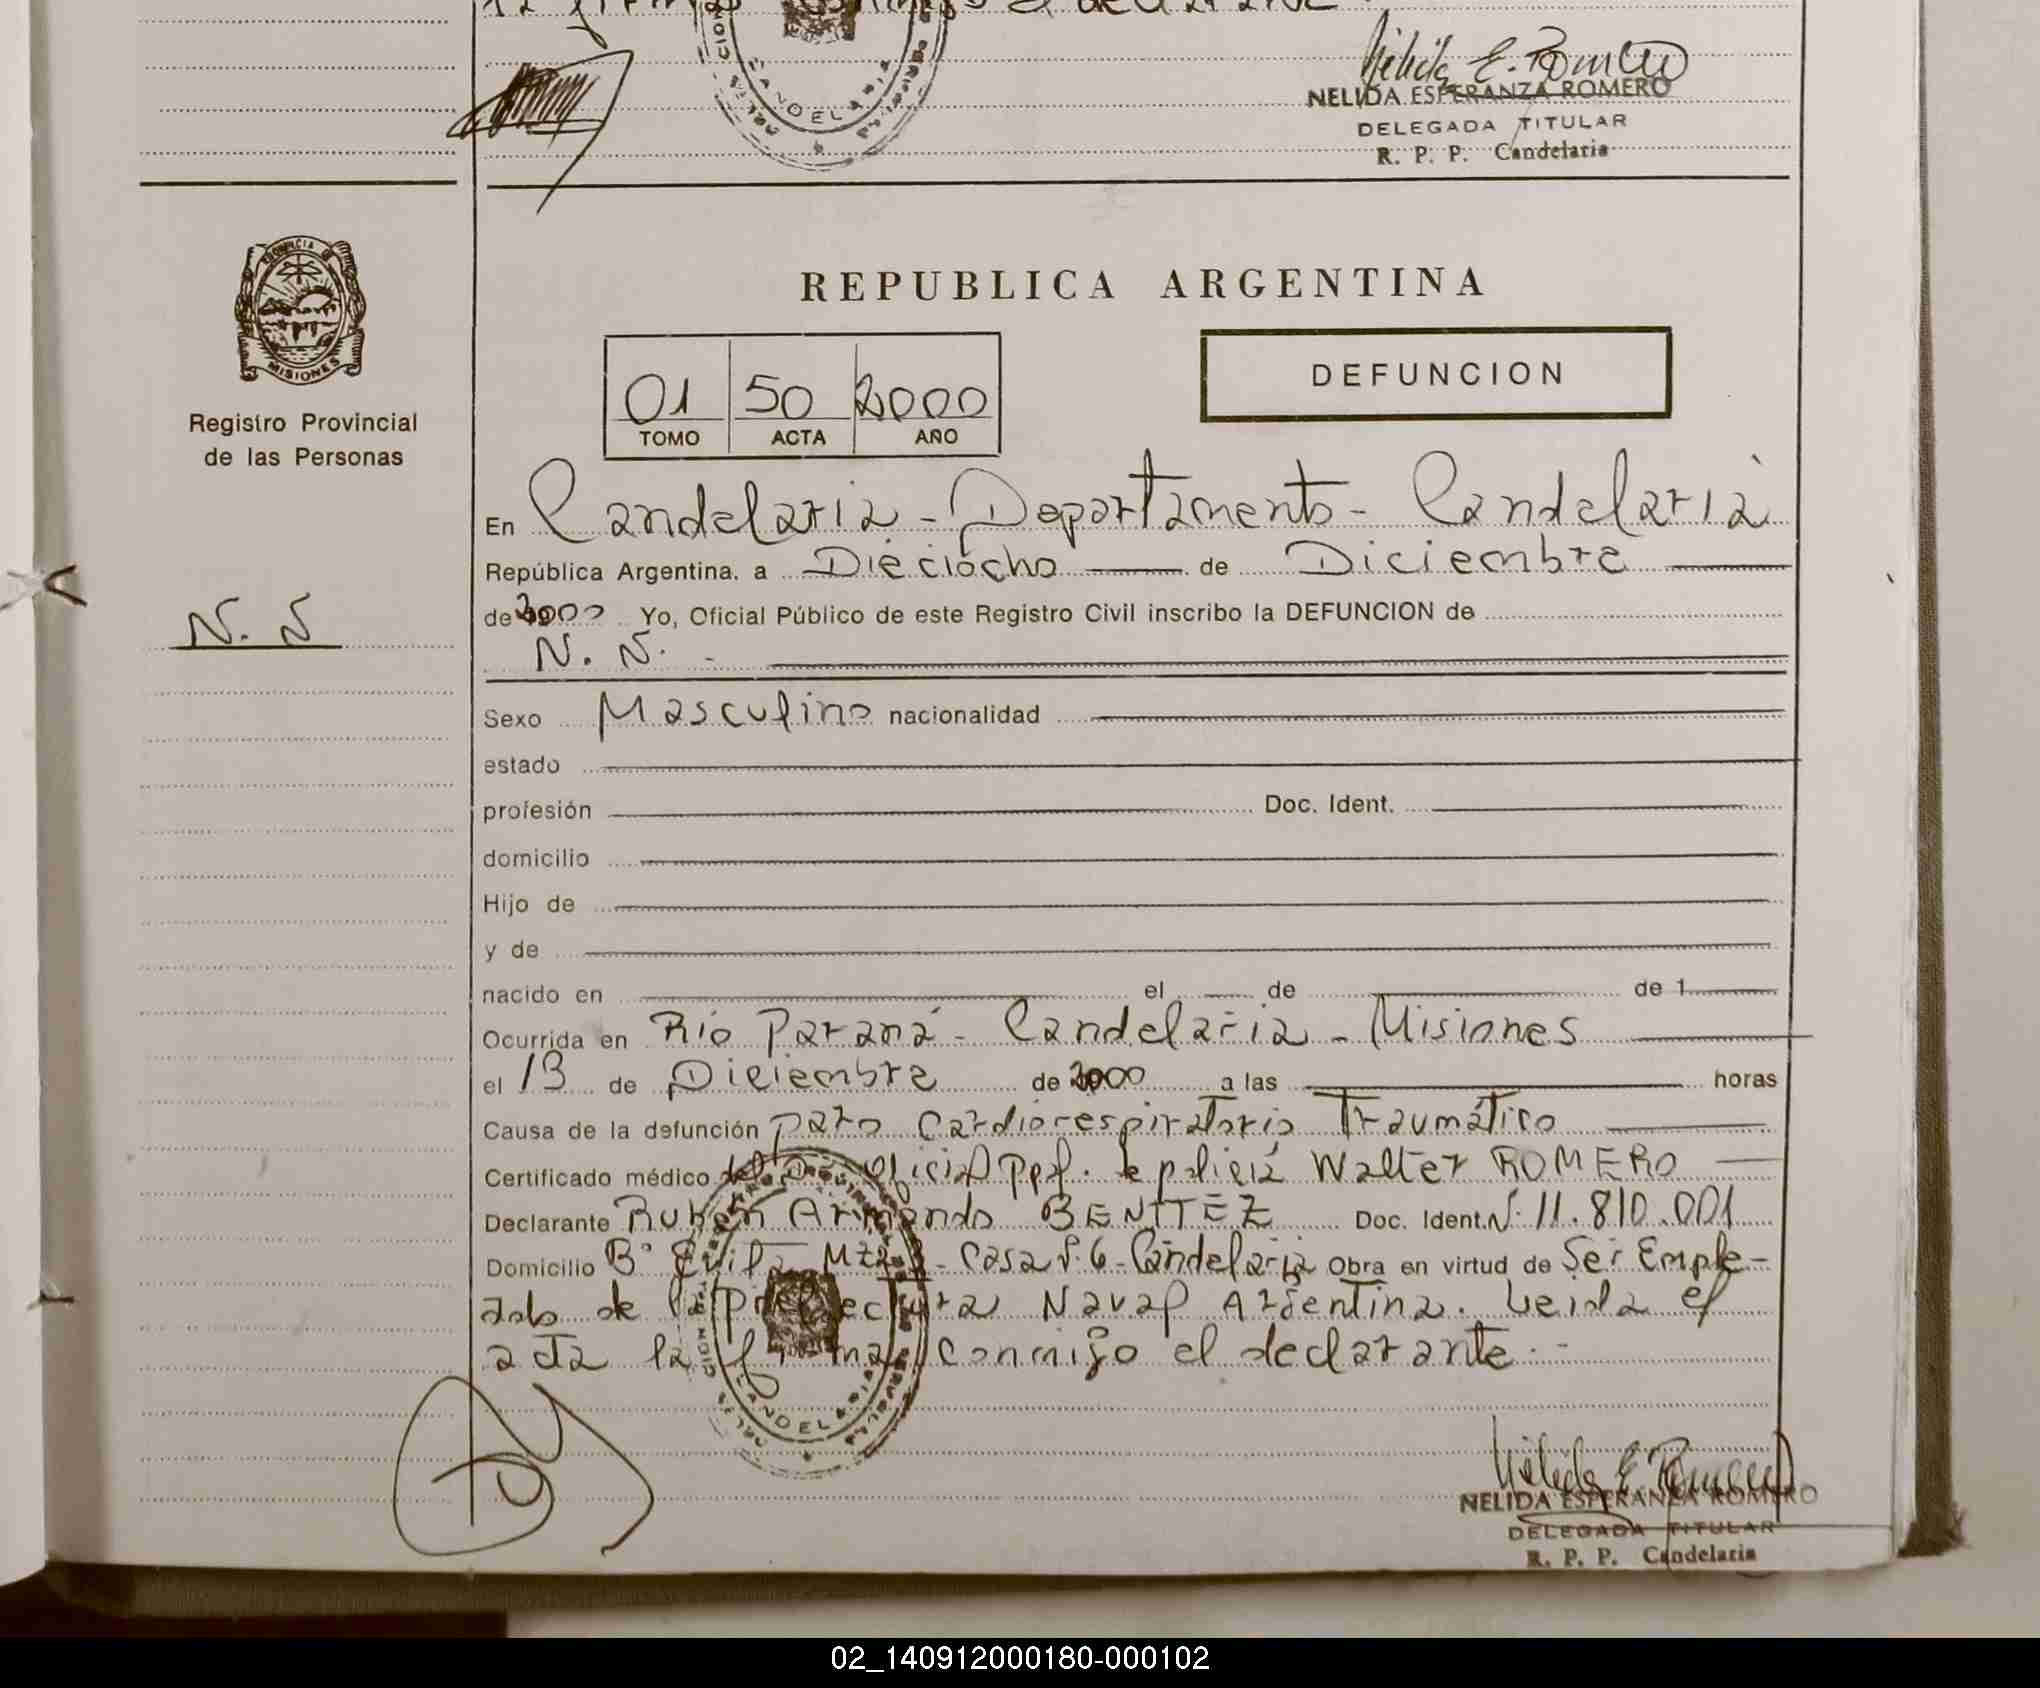 la firma conmigo el declarante.
Nélida E. Romero
NELIDA ESPERANZA ROMERO
DELEGADA TITULAR
R. P. P. Candelaria
PROVINCIA DE
MISIONES
Registro Provincial
de las Personas
REPUBLICA ARGENTINA
01 50 2000
TOMO ACTA AÑO
DEFUNCION
En Candelaria - Departamento - Candelaria
República Argentina, a Dieciocho de Diciembre
de 2000 Yo, Oficial Público de este Registro Civil inscribo la DEFUNCION de
N. N
N. N. -
Sexo Masculino nacionalidad
estado
profesión Doc. Ident.
domicilio
Hijo de
y de
nacido en el de de 1
Ocurrida en Río Paraná - Candelaria - Misiones
el 13 de Diciembre de 2000 a las horas
Causa de la defunción paro cardiorespiratorio Traumático
Certificado médico del oficial ppal. de policía Walter ROMERO
Declarante Rubén Armando BENITEZ Doc. Ident. Nº 11.810.001
Domicilio Bº Evita Mza - Casa Nº 6 - Candelaria Obra en virtud de Ser Emple-
ado de la prefectura Naval Argentina. Leida el
acta la firma conmigo el declarante. -
CANDELARIA
Nélida E. Romero
NELIDA ESPERANZA ROMERO
DELEGADA TITULAR
R. P. P. Candelaria
02_140912000180-000102